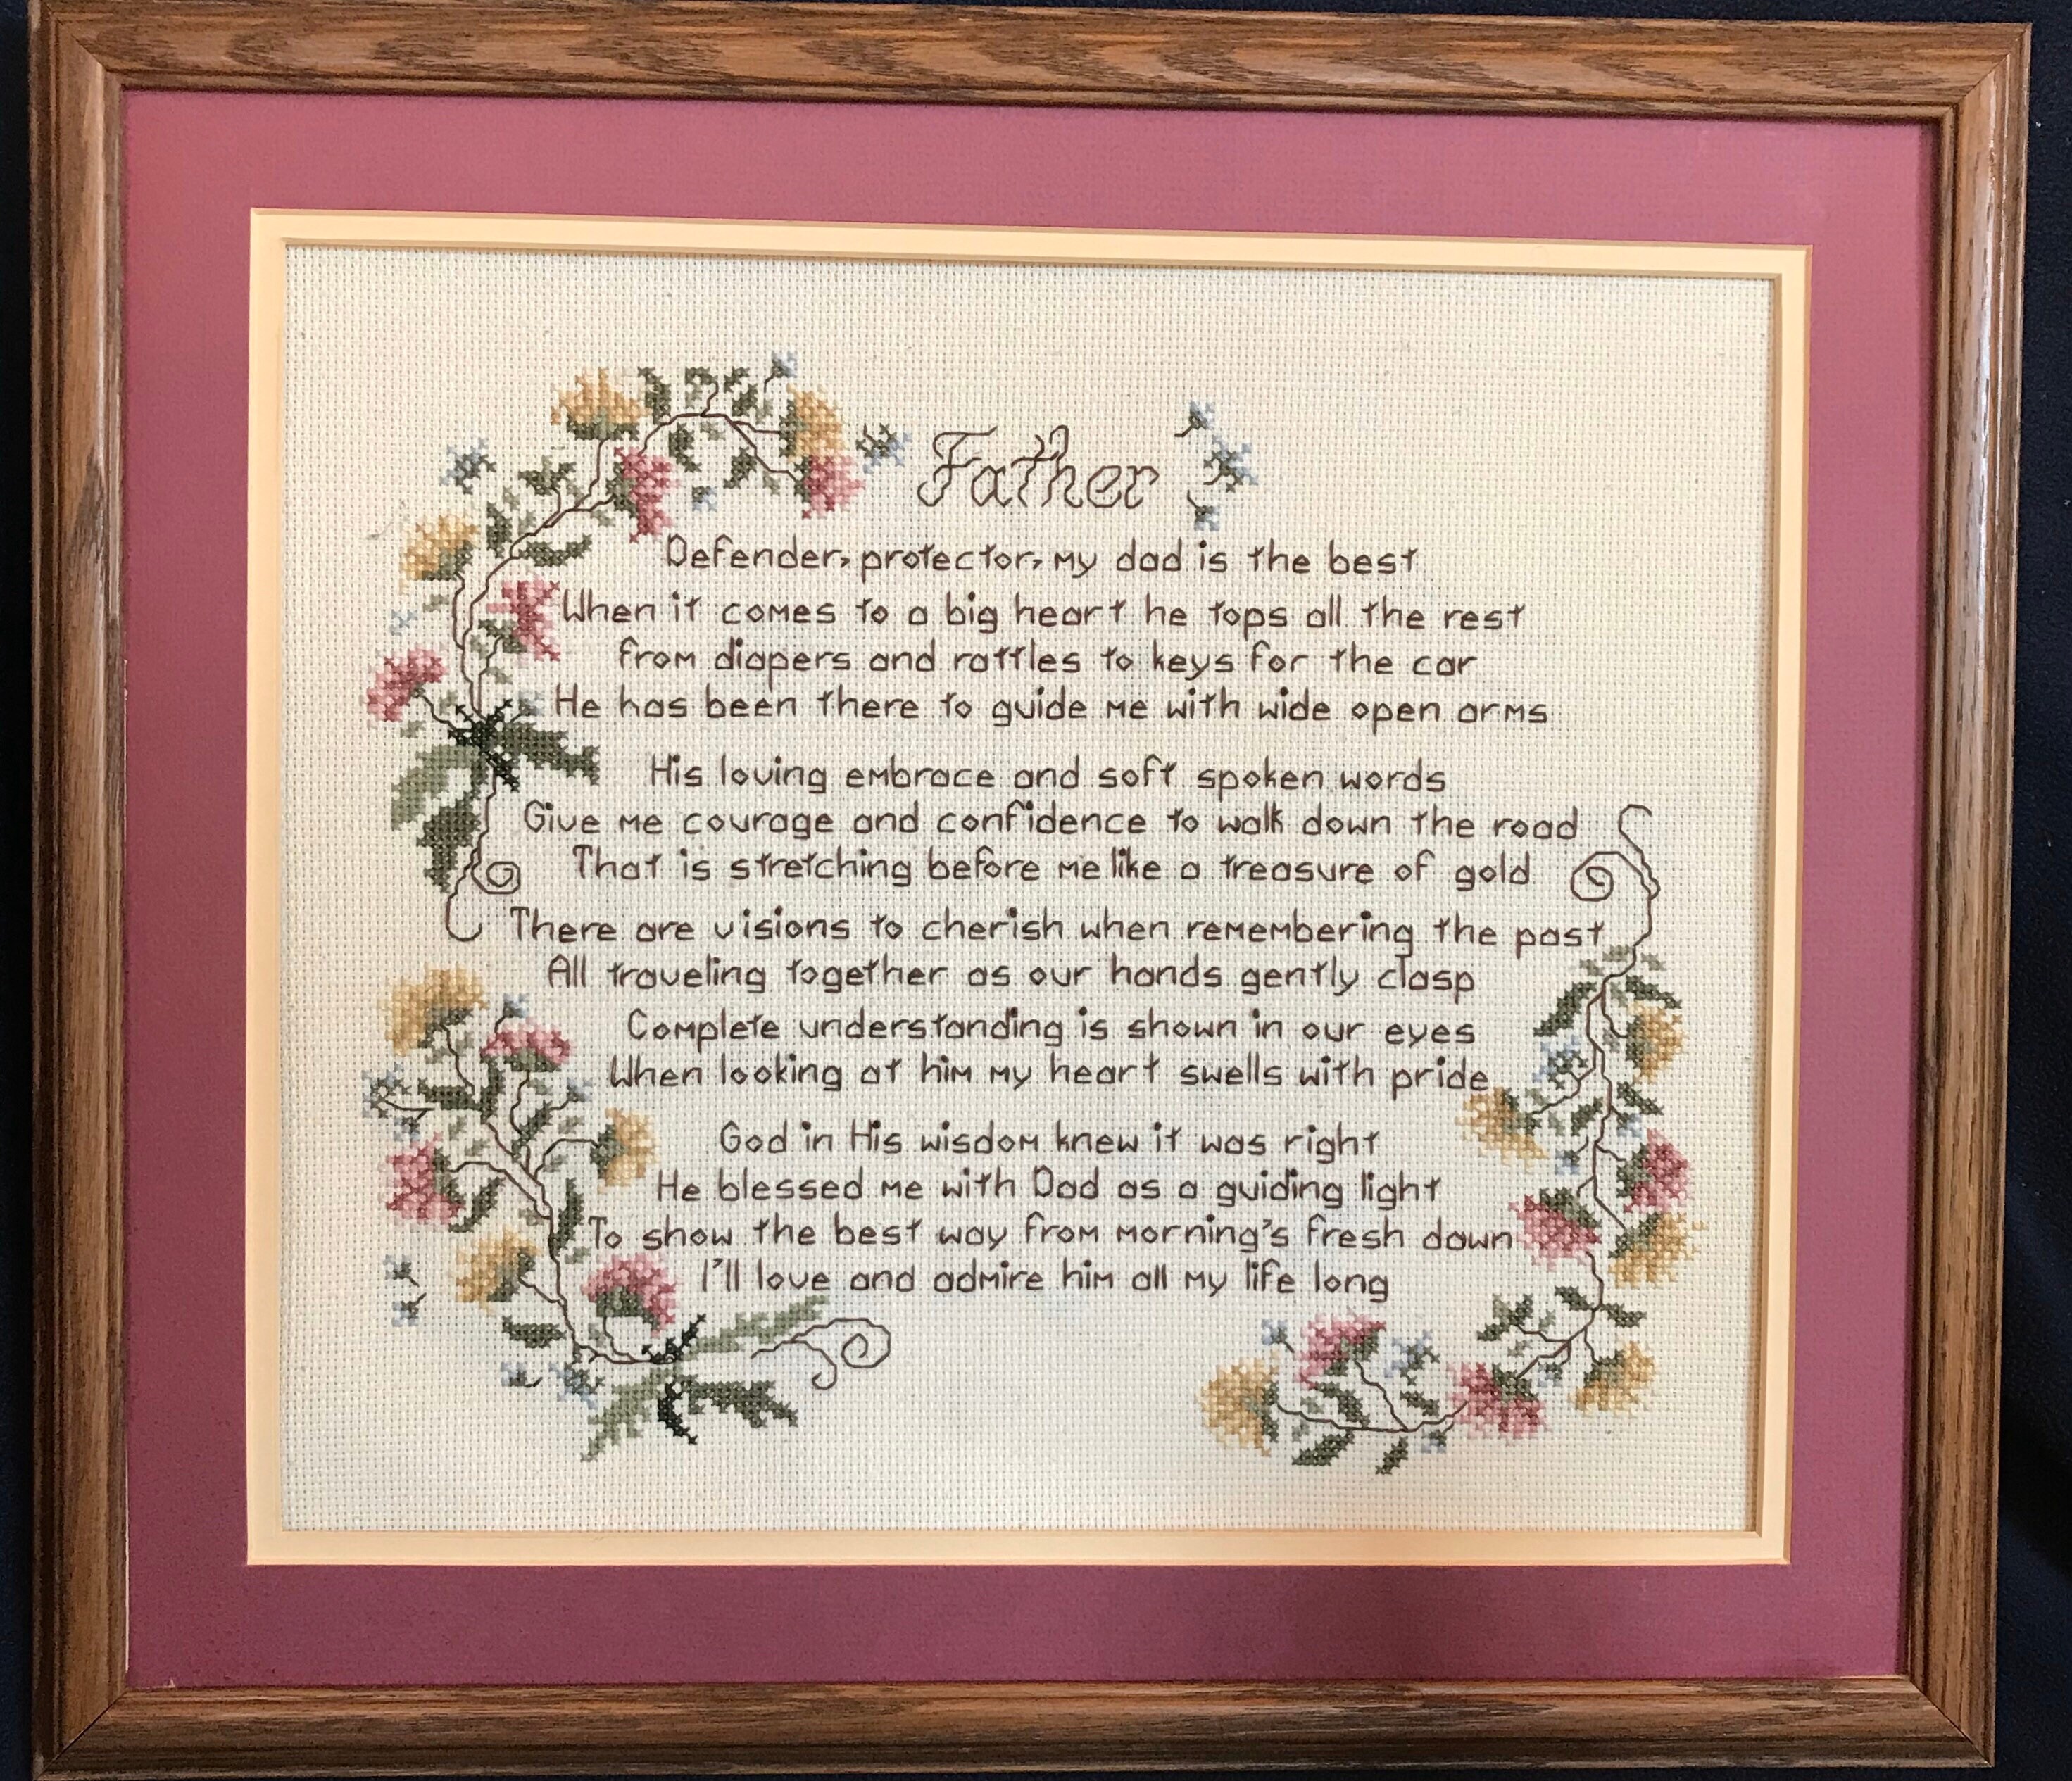 Father
Defender, protector, my dad is the best
When it comes to a big heart he tops all the rest
from diapers and rattles to keys for the car
He has been there to guide me with wide open arms
His loving embrace and soft spoken words
Give me courage and confidence to walk down the road
That is stretching before me like a treasure of gold
There are visions to cherish when remembering the past
All traveling together as our hands gently clasp
Complete understanding is shown in our eyes
When looking at him my heart swells with pride
God in His wisdom knew it was right
He blessed me with Dad as a guiding light
To show the best way from morning's fresh dawn
I'll love and admire him all my life long